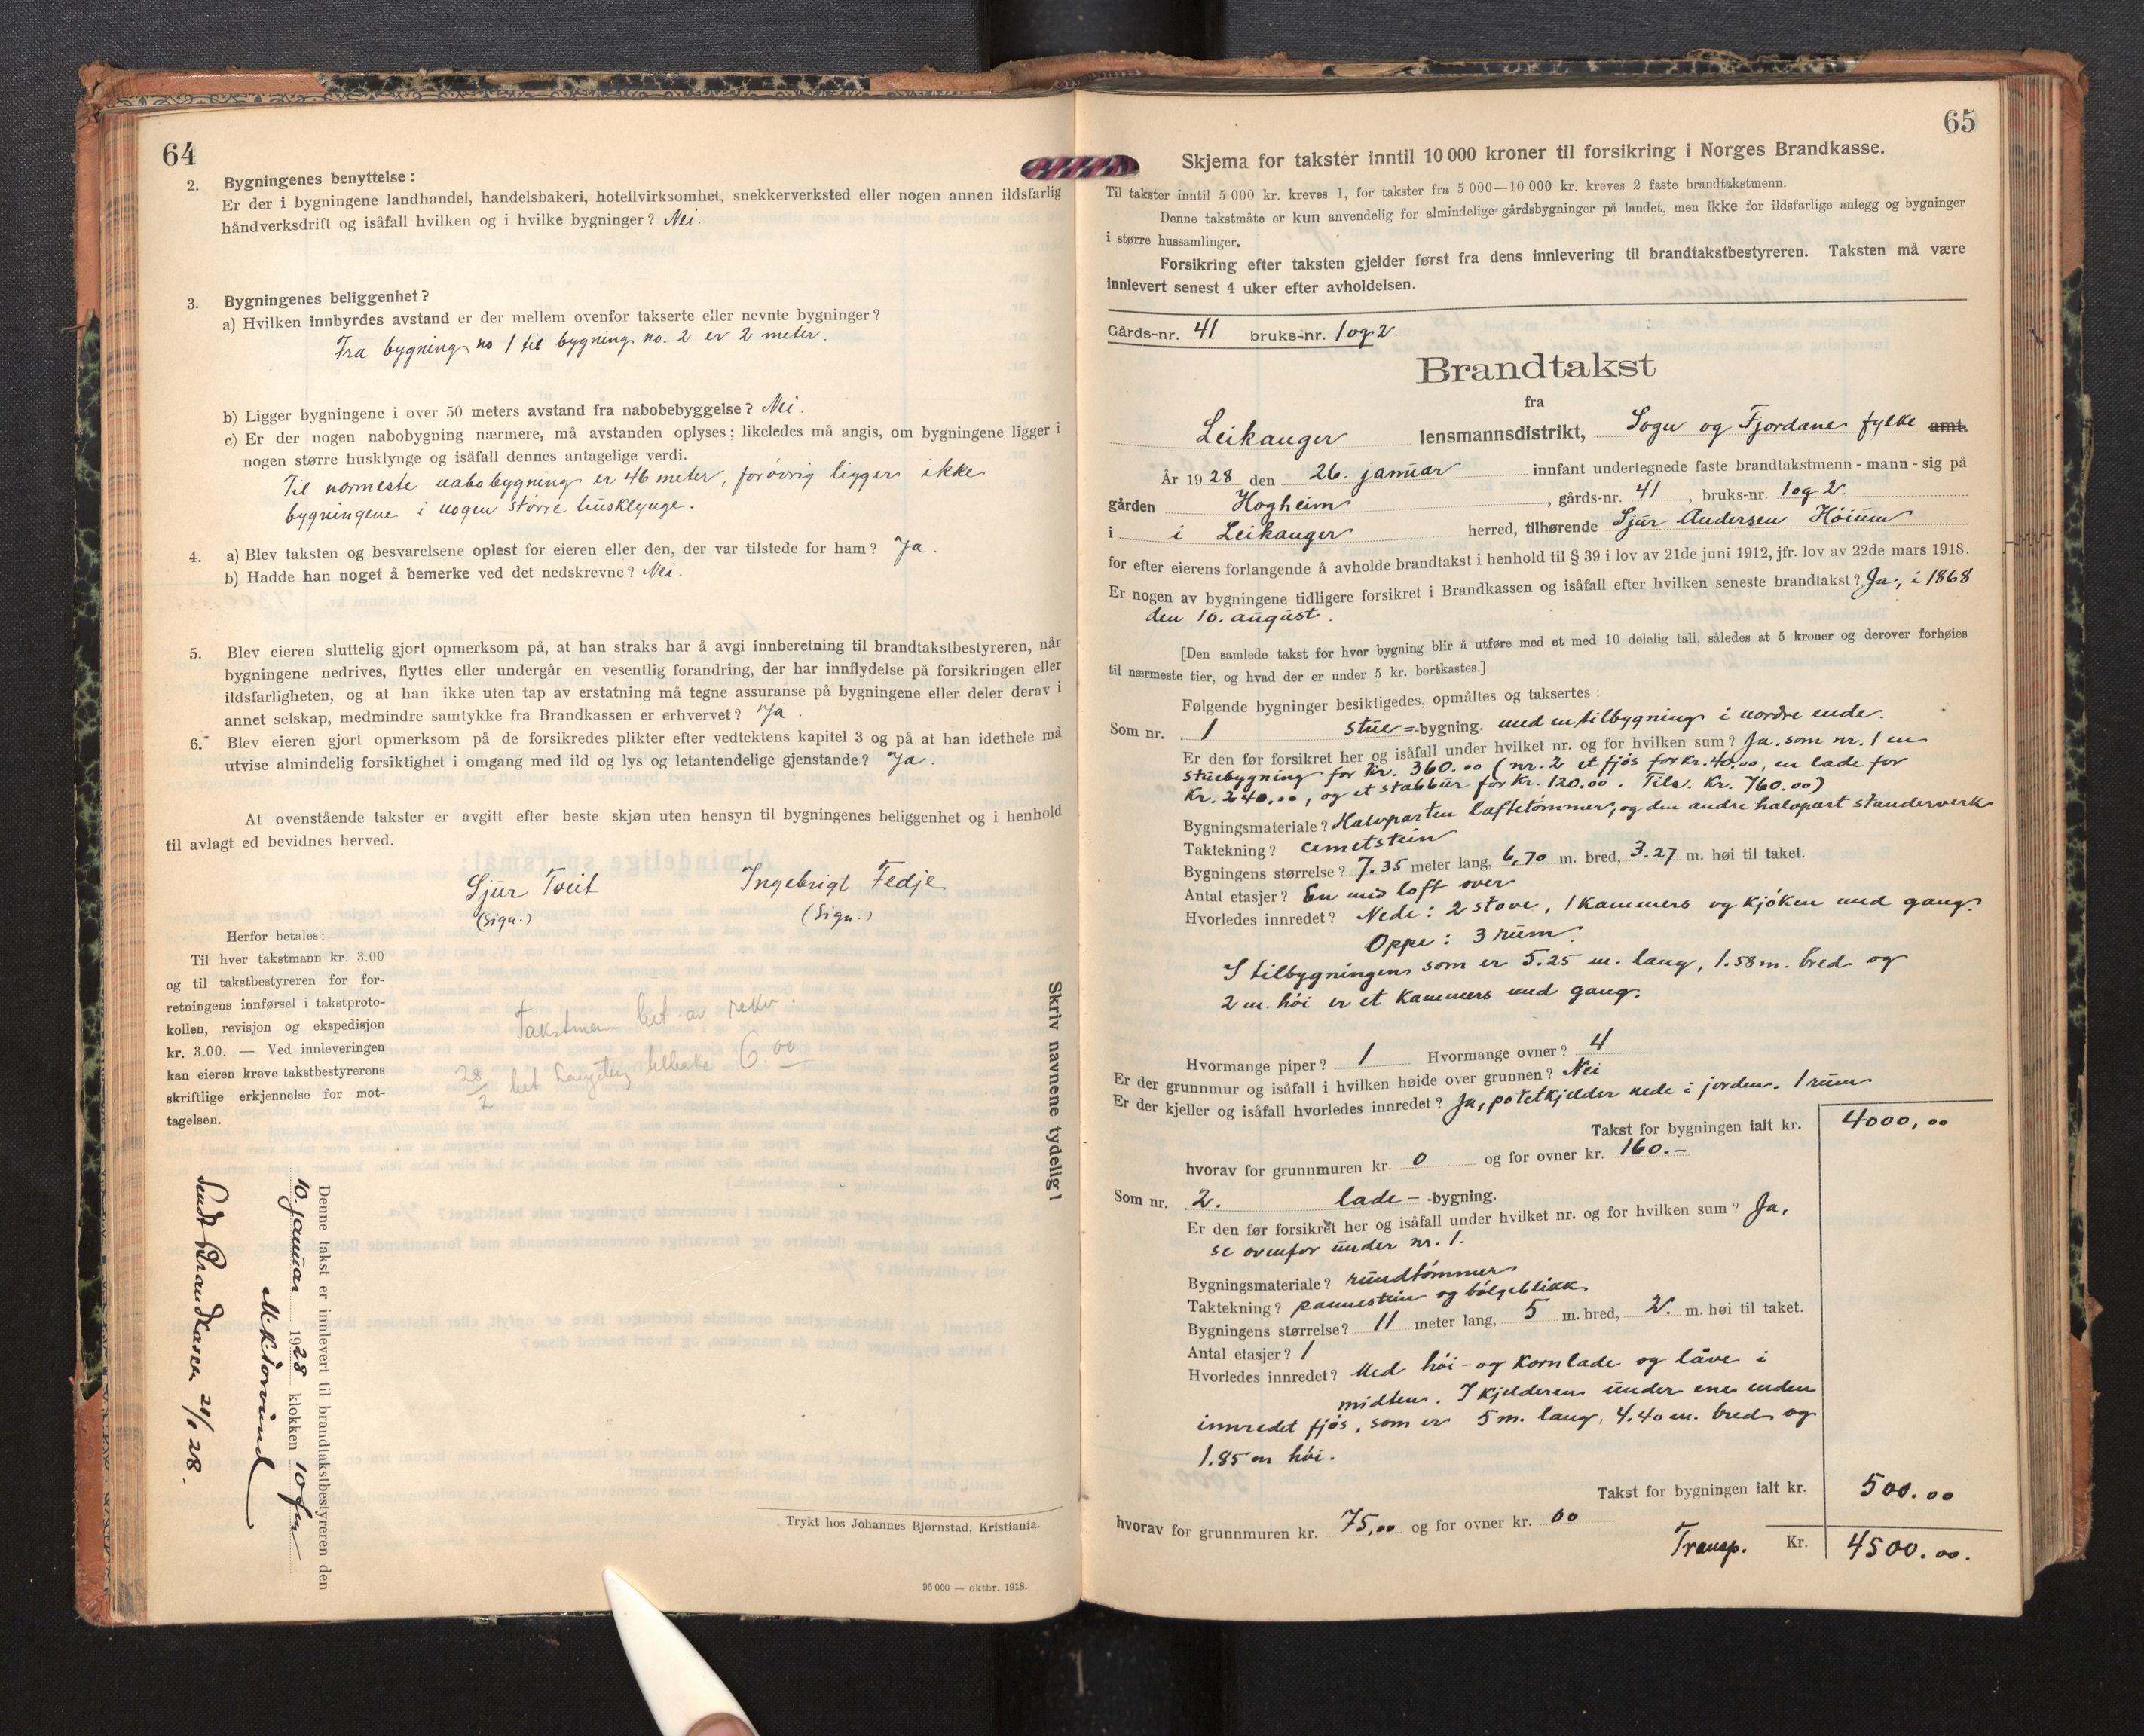 64
2. Bygningenes benyttelse:
Er der i bygningene landhandel, handelsbakeri, hotellvirksomhet, snekkerverksted eller nogen annen ildsfarlig
håndverksdrift og isåfall hvilken og i hvilke bygninger? Nei.
3. Bygningenes beliggenhet?
a) Hvilken innbyrdes avstand er der mellem ovenfor takserte eller nevnte bygninger?
Fra bygning no 1 til bygning no. 2 er 2 meter.
b) Ligger bygningene i over 50 meters avstand fra nabobebyggelse? Nei.
c) Er der nogen nabobygning nærmere, må avstanden oplyses; likeledes må angis, om bygningene ligger i
nogen større husklynge og isåfall dennes antagelige verdi.
Til nærmeste nabobygning er 46 meter, forøvrig ligger ikke
bygningene i nogen større husklynge.
4. a) Blev taksten og besvarelsene oplest for eieren eller den, der var tilstede for ham? Ja.
b) Hadde han noget å bemerke ved det nedskrevne? Nei.
5. Blev eieren sluttelig gjort opmerksom på, at han straks har å avgi innberetning til brandtakstbestyreren, når
bygningene nedrives, flyttes eller undergår en vesentlig forandring, der har innflydelse på forsikringen eller
ildsfarligheten, og at han ikke uten tap av erstatning må tegne assuranse på bygningene eller deler derav i
annet selskap, medmindre samtykke fra Brandkassen er erhvervet? Ja.
6. Blev eieren gjort opmerksom på de forsikredes plikter efter vedtektens kapitel 3 og på at han idethele må
utvise almindelig forsiktighet i omgang med ild og lys og letantendelige gjenstande? Ja.
At ovenstående takster er avgitt efter beste skjøn uten hensyn til bygningenes beliggenhet og i henhold
til avlagt ed bevidnes herved.
Sjur Tveit Ingebrigt Fedje
(Sign.) (Sign.)
Herfor betales:
Til hver takstmann kr. 3.00
og til takstbestyreren for for-
retningens innførsel i takstproto-
kollen, revisjon og ekspedisjon
kr. 3.00. — Ved innleveringen
kan eieren kreve takstbestyrerens
skriftlige erkjennelse for mot-
tagelsen.
Takstmen bet av rekv.
28/2 bet 6.00
Skriv navnene tydelig!
Denne takst er innlevert til brandtakstbestyreren den
10. januar 1928 klokken 10 fm
Sendt Brandkassen 21/1 28.
Trykt hos Johannes Bjørnstad, Kristiania.
95 000 — oktbr. 1918.
65
Skjema for takster inntil 10 000 kroner til forsikring i Norges Brandkasse.
Til takster inntil 5 000 kr. kreves 1, for takster fra 5 000—10 000 kr. kreves 2 faste brandtakstmenn.
Denne takstmåte er kun anvendelig for almindelige gårdsbygninger på landet, men ikke for ildsfarlige anlegg og bygninger
i større hussamlinger.
Forsikring efter taksten gjelder først fra dens innlevering til brandtakstbestyreren. Taksten må være
innlevert senest 4 uker efter avholdelsen.
Gårds-nr. 41 bruks-nr. 1 og 2
Brandtakst
fra
Leikanger lensmannsdistrikt, Sogn og Fjordane fylke amt.
År 1928 den 26. januar innfant undertegnede faste brandtakstmenn - mann - sig på
gården Hogheim, gårds-nr. 41, bruks-nr. 1 og 2.
i i Leikanger herred, tilhørende Sjur Andersen Høium
for efter eierens forlangende å avholde brandtakst i henhold til § 39 i lov av 21de juni 1912, jfr. lov av 22de mars 1918.
Er nogen av bygningene tidligere forsikret i Brandkassen og isåfall efter hvilken seneste brandtakst? Ja, i 1868
den 10. august.
[Den samlede takst for hver bygning blir å utføre med et med 10 delelig tall, således at 5 kroner og derover forhøies
til nærmeste tier, og hvad der er under 5 kr. bortkastes.]
Følgende bygninger besiktigedes, opmåltes og taksertes:
Som nr. 1 stue=-bygning. med en tilbygning i nordre ende.
Er den før forsikret her og isåfall under hvilket nr. og for hvilken sum? Ja. som nr. 1 en
stuebygning for Kr. 360.00 (nr. 2 et fjøs for Kr. 40.00, en lade for
Kr. 240.00, og et stabbur for Kr. 120.00. Tils. Kr. 760.00)
Bygningsmateriale? Halvparten laftetømmer, og den andre halvpart standerverk
Taktekning? cemetstein
Bygningens størrelse? 7.35 meter lang, 6,70 m. bred, 3.27 m. høi til taket.
Antal etasjer? En med loft over
Hvorledes innredet? Nede: 2 stove, 1 kammers og kjøken med gang.
Oppe: 3 rum.
I tilbygningen som er 5.25 m. lang, 1.58 m. bred og
2 m. høi er et kammers med gang.
Hvormange piper? 1 Hvormange ovner? 4
Er der grunnmur og isåfall i hvilken høide over grunnen? Nei
Er der kjeller og isåfall hvorledes innredet? Ja, potetkjelder nede i jorden. 1 rum
Takst for bygningen ialt kr. 4000,00
hvorav for grunnmuren kr. 0 og for ovner kr. 160.-
Som nr. 2. lade- -bygning.
Er den før forsikret her og isåfall under hvilket nr. og for hvilken sum? Ja,
se ovenfor under nr. 1.
Bygningsmateriale? rundtømmer
Taktekning? pannestein og bølgeblikk
Bygningens størrelse? 11 meter lang, 5 m. bred, 2. m. høi til taket.
Antal etasjer? 1
Hvorledes innredet? Med høi- og kornlade og låve i
midten. I kjelderen under ene enden
innredet fjøs, som er 5 m. lang, 4.40 m. bred og
1.85 m høi.
Takst for bygningen ialt kr. 500.00
hvorav for grunnmuren kr. 75,00 og for ovner kr. 00
Transp. Kr. 4500.00.